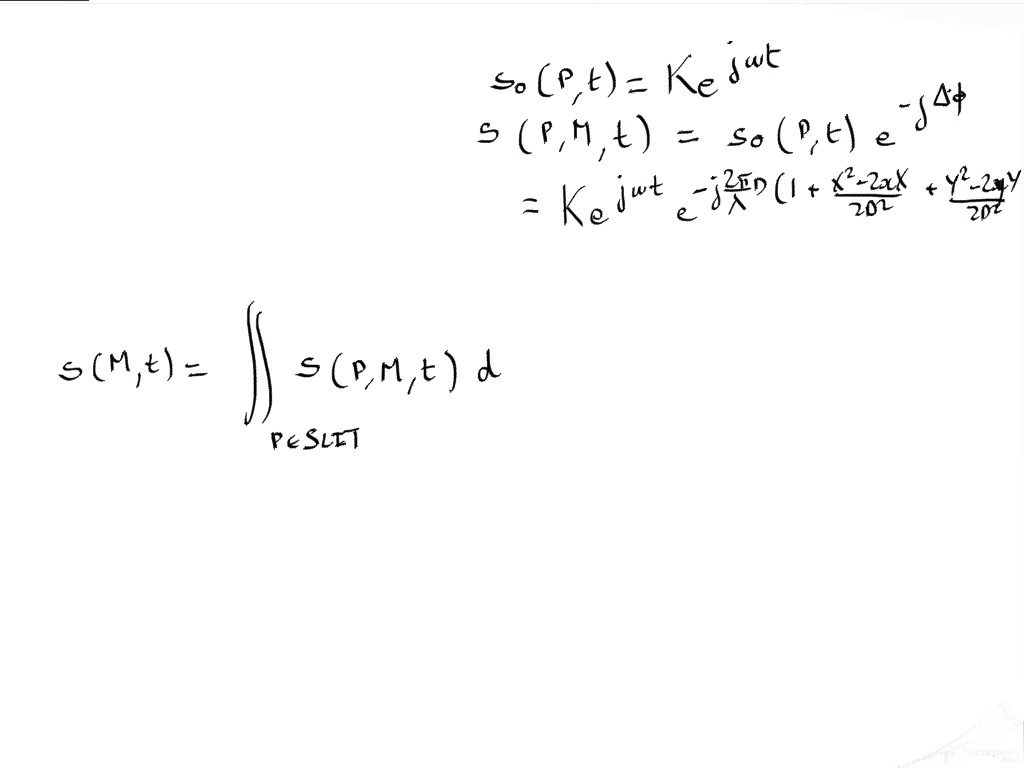 s₀(P,t) = K e^{jωt}
s(P,M,t) = s₀(P,t) e^{-jΔϕ}
= K e^{jωt} e^{-j\frac{2π}{λ}D(1 + \frac{X²-2xX}{2D²} + \frac{Y²-2yY}{2D²}}
s(M,t) = ∬_{P∈SLIT} s(P,M,t) d